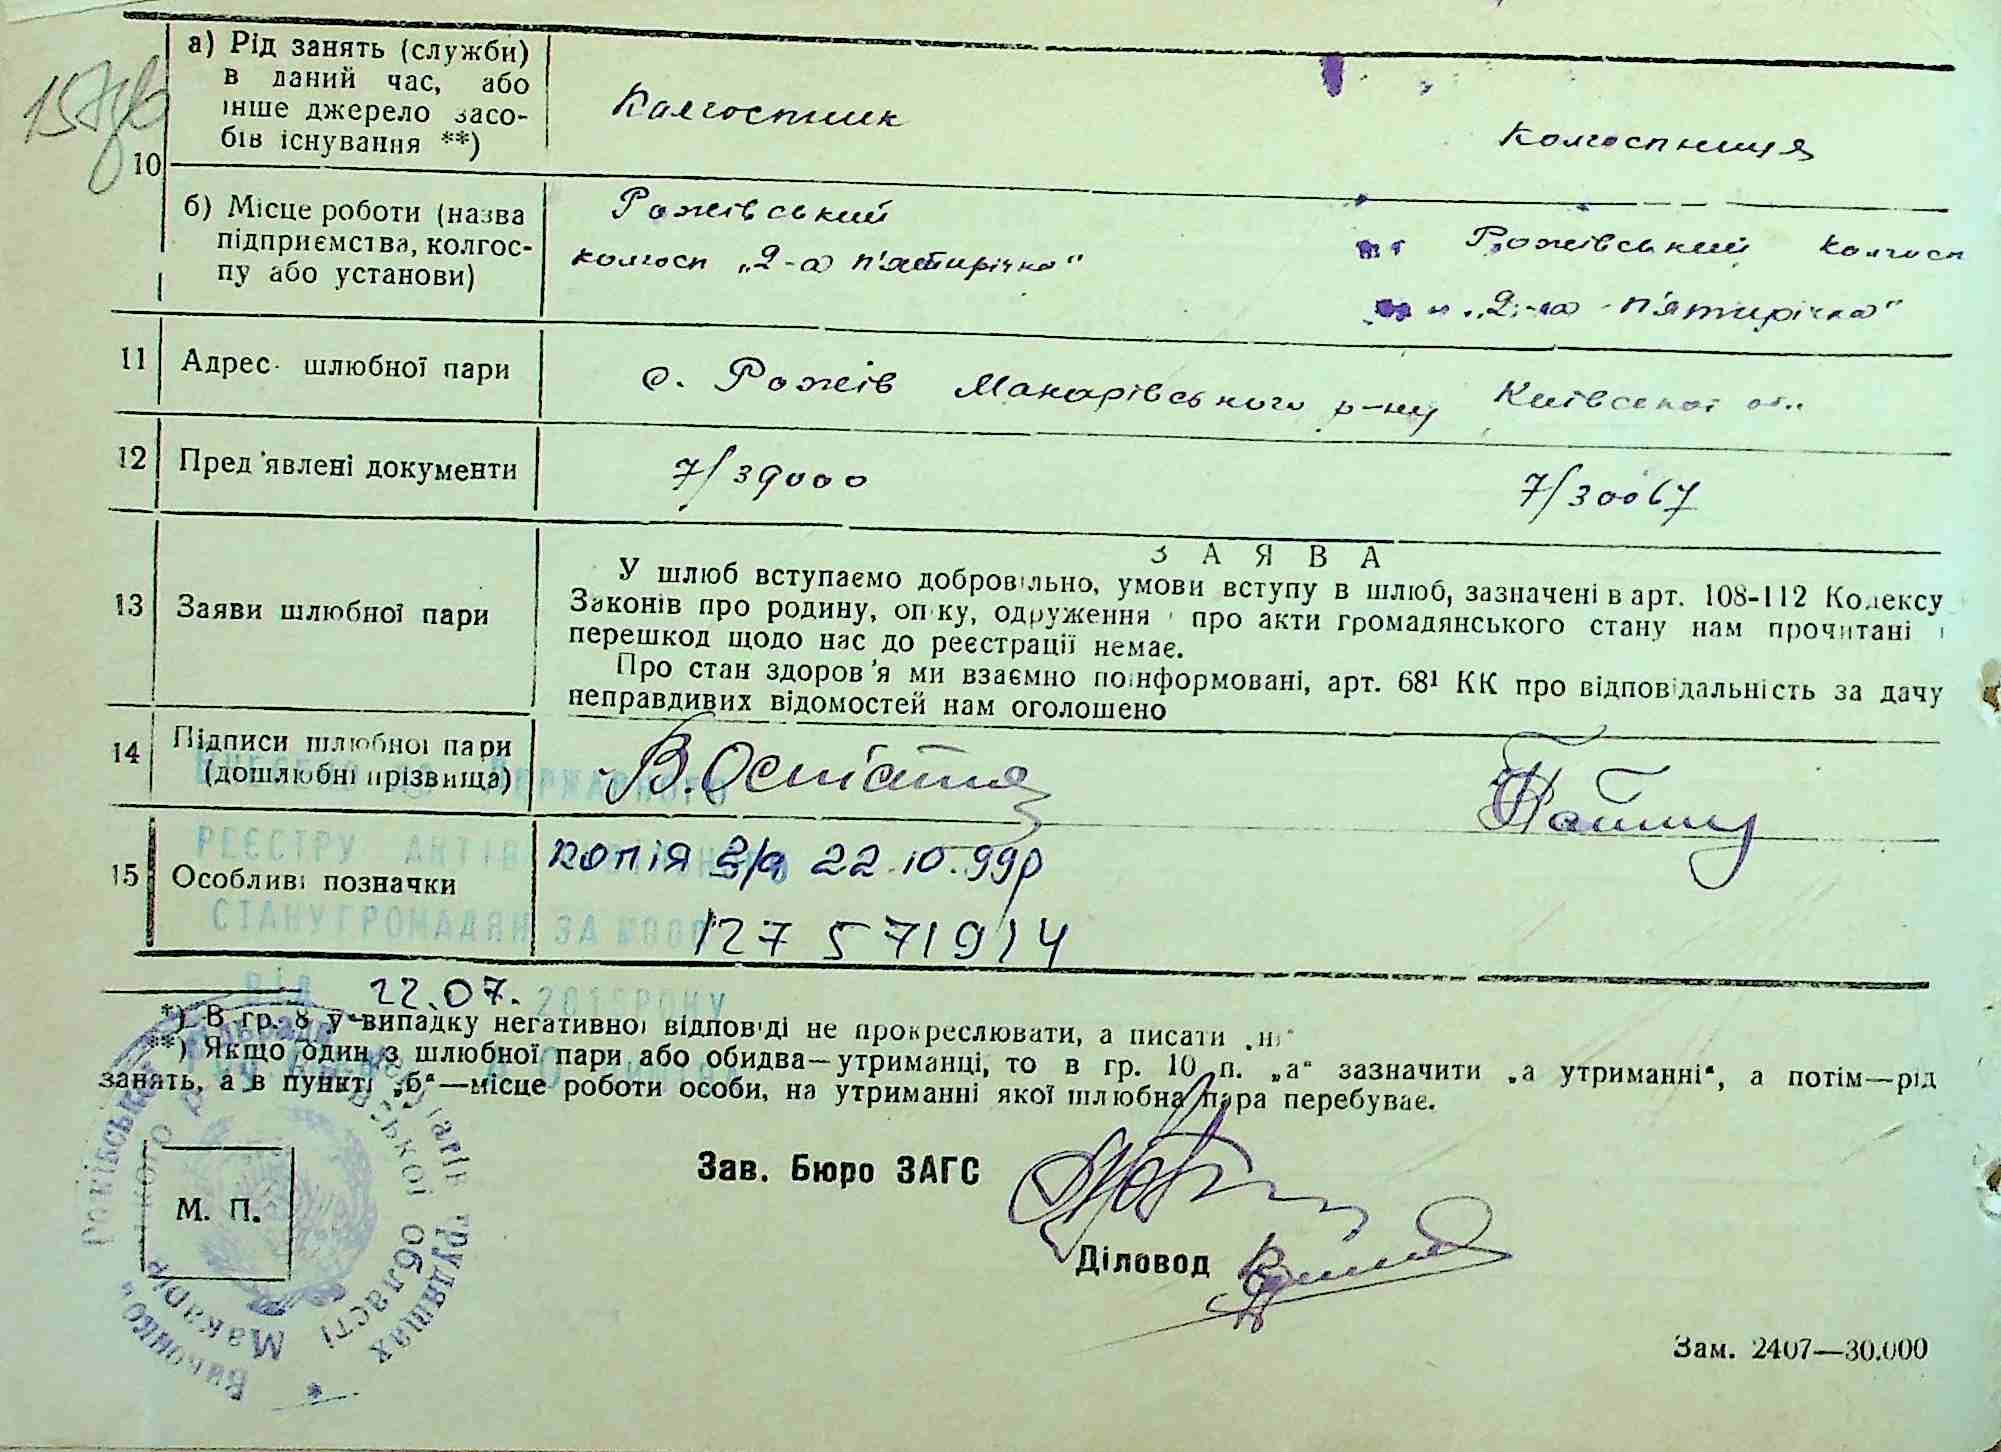 10
а) Рід занять (служби)
в даний час, або
інше джерело засо-
бів існування **)
Колгоспник
Колгоспниця
б) Місце роботи (назва
підприємства, колгос-
пу або установи)
Рожівський
колгосп „2-а п'ятирічка"
Рожівський колгосп
„2-га п'ятирічка"
11 Адрес шлюбної пари
с. Рожів Макарівського р-ну Київської обл.
12 Пред'явлені документи
7/39000
7/30067
13 Заяви шлюбної пари
ЗАЯВА
У шлюб вступаємо добровільно, умови вступу в шлюб, зазначені в арт. 108-112 Кодексу
Законів про родину, опіку, одруження і про акти громадянського стану нам прочитані і
перешкод щодо нас до реєстрації немає.
Про стан здоров'я ми взаємно поінформовані, арт. 68¹ КК про відповідальність за дачу
неправдивих відомостей нам оголошено
14 Підписи шлюбної пари
(дошлюбні прізвища)
ВНЕСЕНО ДО ДЕРЖАВНОГО
РЕЄСТРУ АКТІВ
СТАНУ ГРОМАДЯН ЗА
ВІД 22.07. 2015 РОКУ
15 Особливі позначки
копія 22.10.99р
*) В гр. 8 у випадку негативної відповіді не прокреслювати, а писати „ні"
**) Якщо один з шлюбної пари або обидва—утриманці, то в гр. 10 п. „а" зазначити „а утриманні", а потім—рід
занять, а в пункті „б"—місце роботи особи, на утриманні якої шлюбна пара перебуває.
М. П.
Зав. Бюро ЗАГС
Діловод
Зам. 2407—30.000